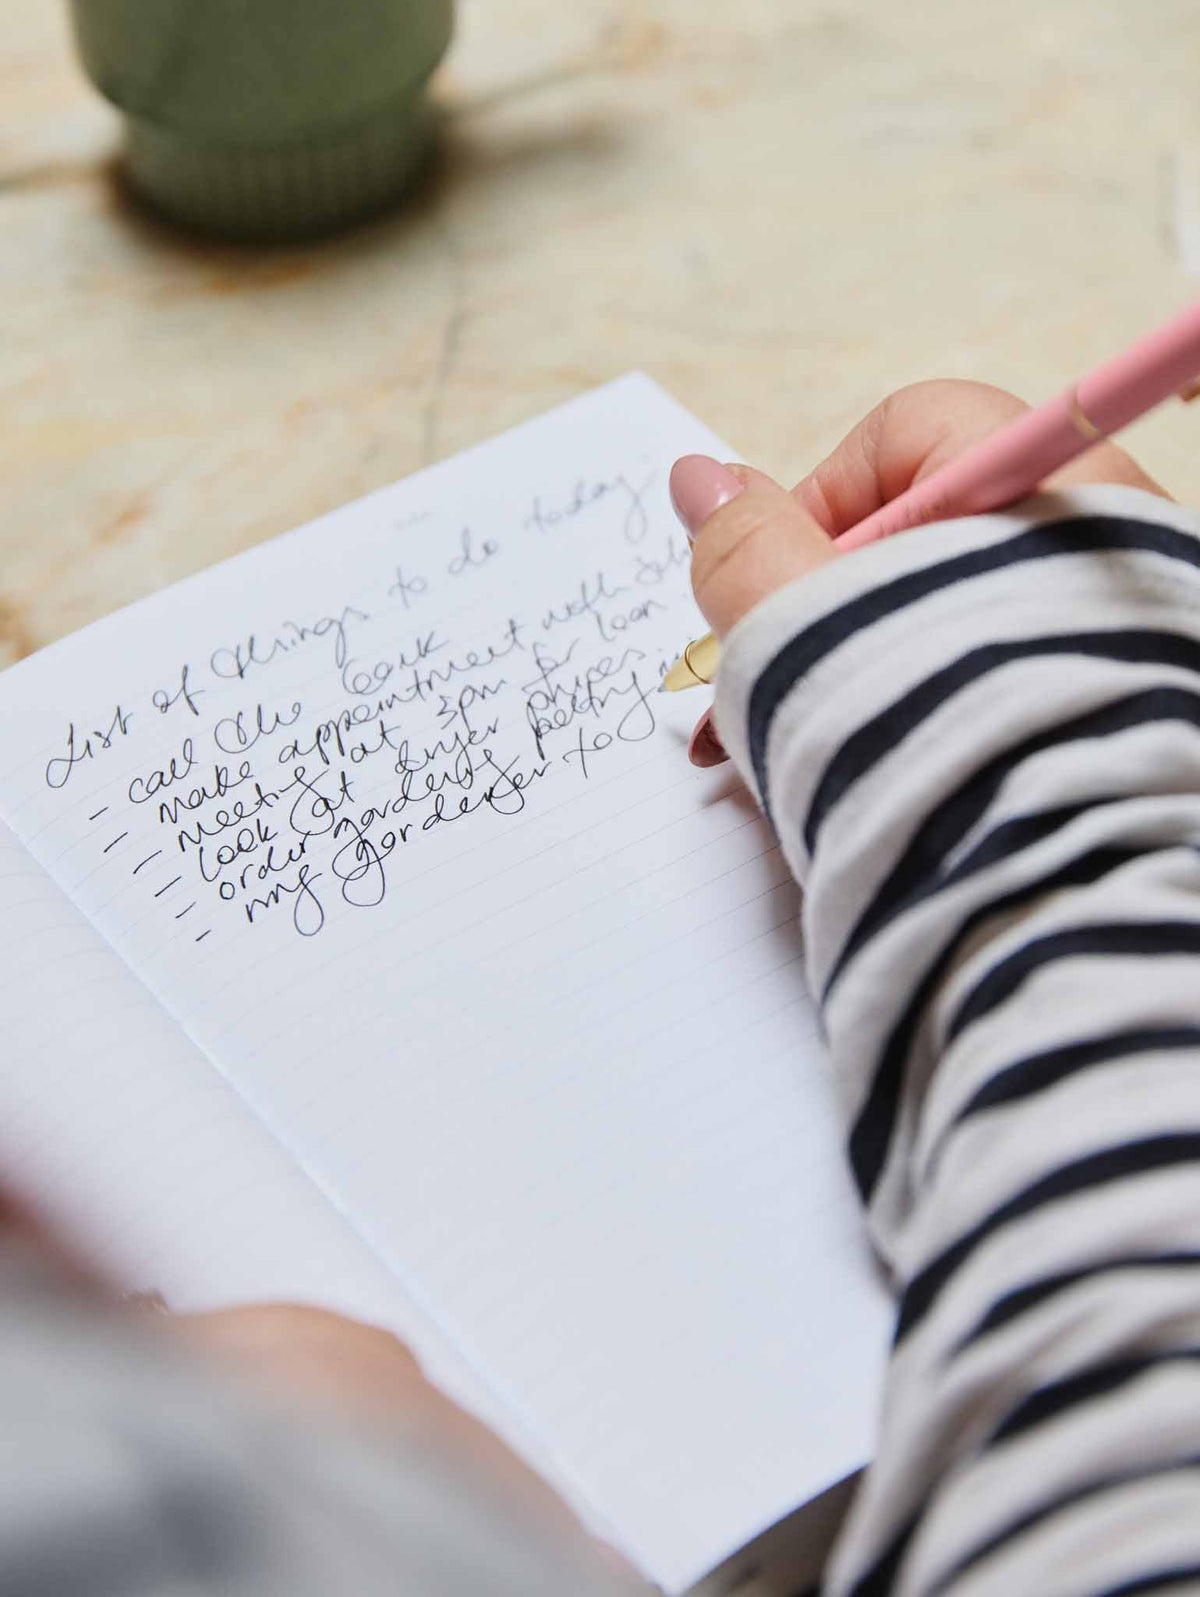 List of things to do today
- call the bank
- make appointment with
- meeting at 3pm for loan
- look at dryer prices
- order
- my gardener to